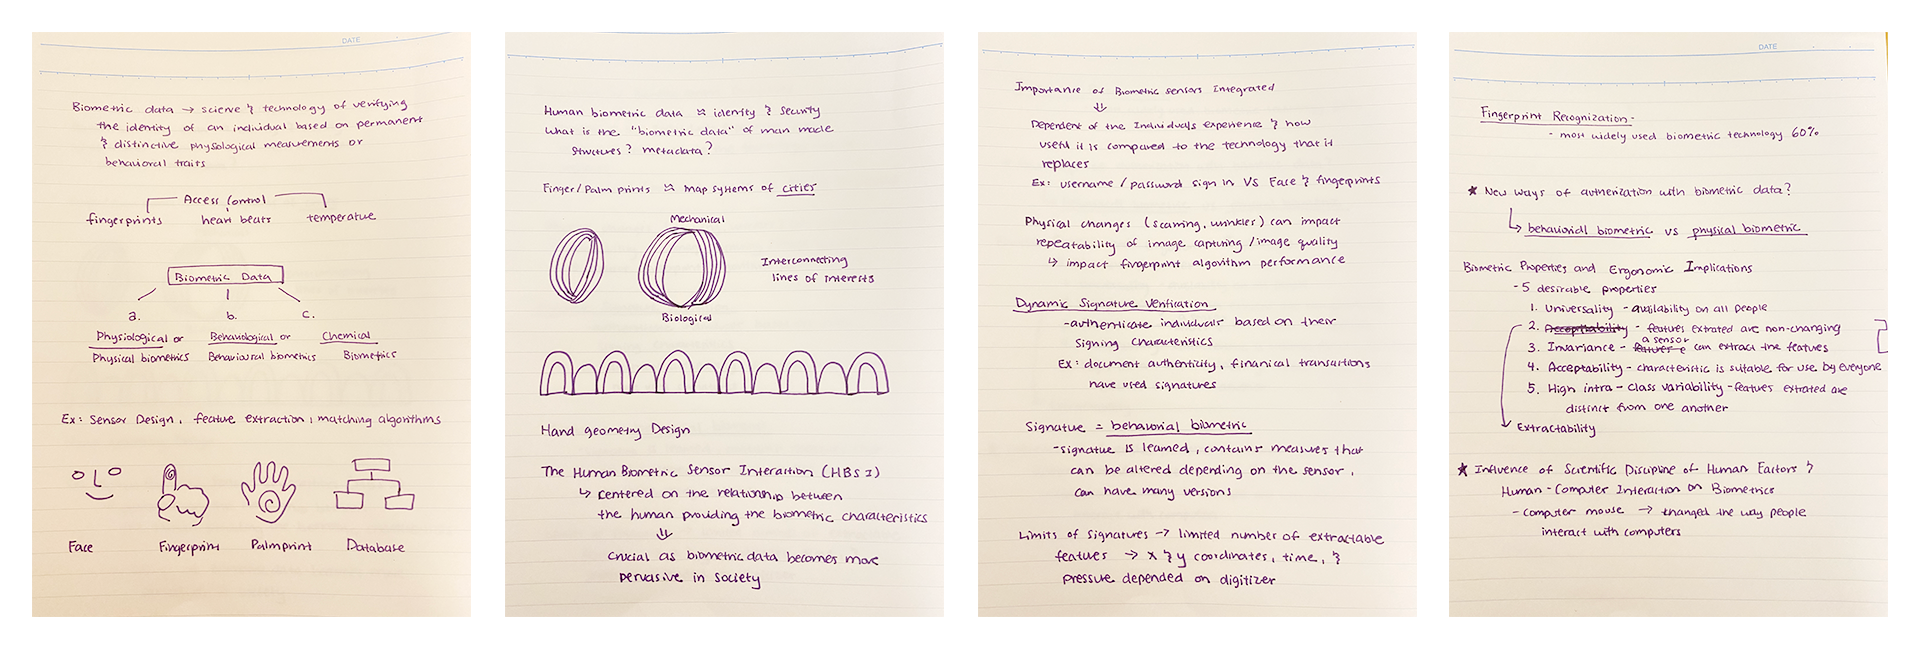 DATE
Biometric data → science & technology of verifying
the identity of an individual based on permanent
& distinctive physiological measurements or
behavioral traits
Access Control
fingerprints heart beats temperature
Biometric Data
a. b. c.
Physiological or Behavioral or Chemical
Physical biometrics Behavioural biometrics Biometrics
Ex: Sensor Design, feature extraction, matching algorithms
Face Fingerprint Palmprint Database
Human biometric data ≈ identity & security
What is the "biometric data" of man made
structures? metadata?
Finger/Palm prints ≈ map systems of cities
Mechanical
Interconnecting
lines of interests
Biological
Hand geometry Design
The Human Biometric Sensor Interaction (HBSI)
↳ centered on the relationship between
the human providing the biometric characteristics
⇓
crucial as biometric data becomes more
pervasive in society
Importance of Biometric sensors Integrated
⇓
Dependent of the Individuals experience & how
useful it is compared to the technology that it
replaces
Ex: username / password sign in Vs Face & fingerprints
Physical changes (scarring, wrinkles) can impact
repeatability of image capturing /image quality
↳ impact fingerprint algorithm performance
Dynamic Signature Verification
-authenticate individuals based on their
signing characteristics
Ex: document authenticity, finanical transactions
have used signatures
Signature = behavorial biometric
-signature is learned, contains measures that
can be altered depending on the sensor,
can have many versions
Limits of Signatures → limited number of extractable
features → x & y coordinates, time, &
pressure depended on digitizer
DATE
Fingerprint Recognization-
- most widely used biometric technology 60%
★ New ways of authenization with biometric data?
↳ behavorial biometric vs physical biometric
Biometric Properties and Ergonomic Implications
-5 desirable properties
1. Universality - availability on all people
2. Acceptability - features extrated are non-changing
a sensor
3. Invariance - can extract the features
4. Acceptability - characteristic is suitable for use by everyone
5. High intra - class variability - features extrated are
distinct from one another
Extractability
★ Influence of Scientific Discipline of Human Factors &
Human - Computer Interaction on Biometrics
- computer mouse → changed the way people
interact with computers